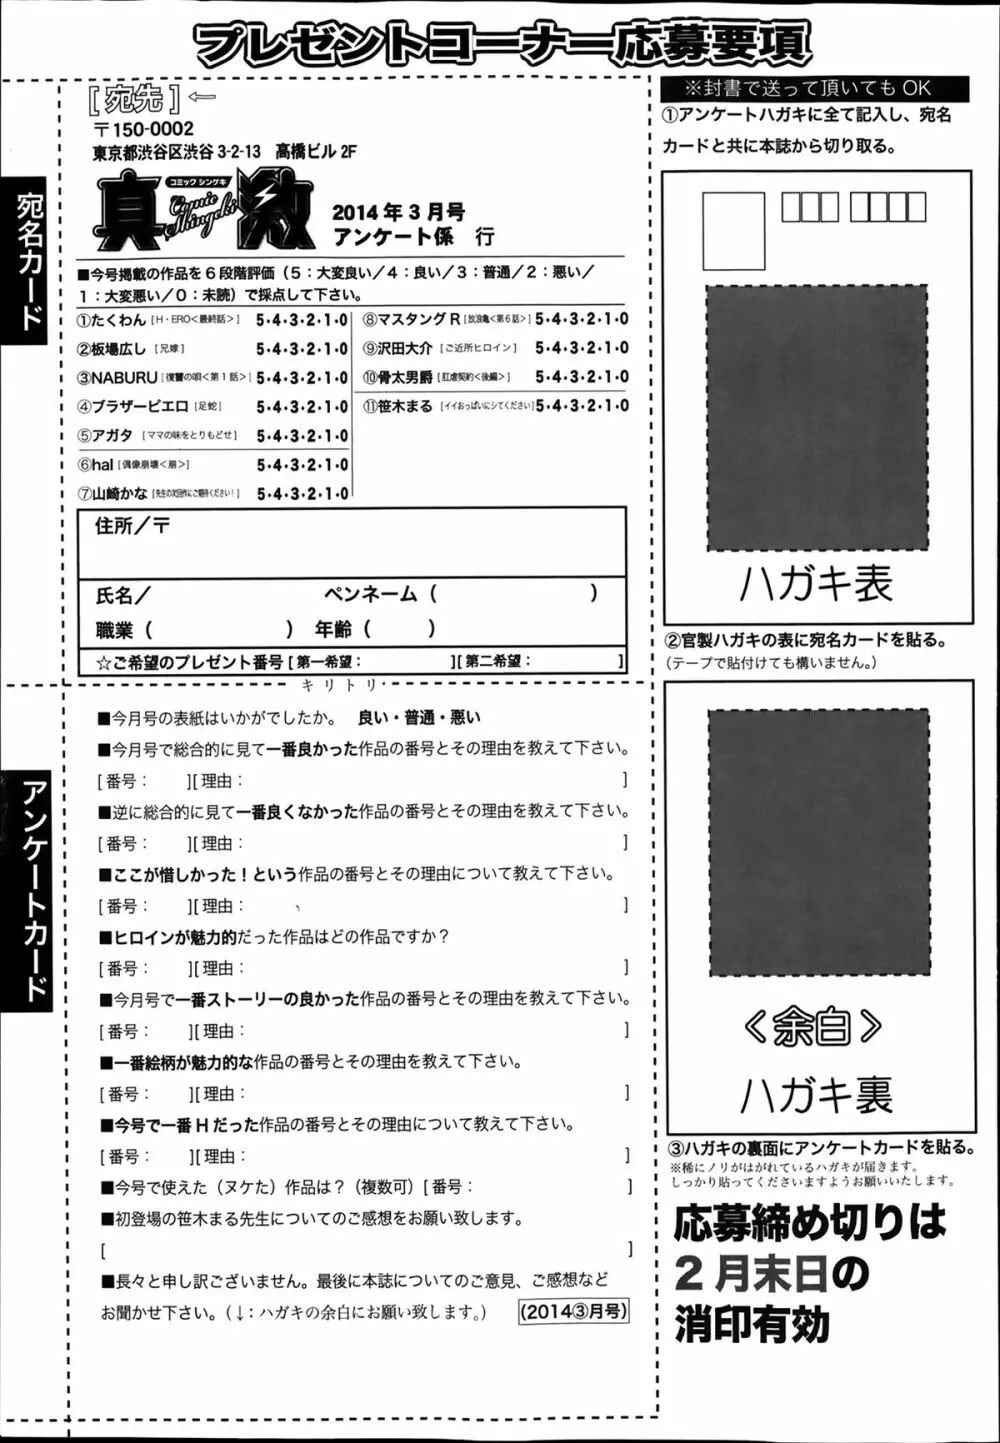 プレゼントコーナー応募要項
宛名カード
[宛先]←
〒150-0002
東京都渋谷区渋谷 3-2-13 高橋ビル 2F
コミックシンゲキ
真激
Comic Shingeki
2014 年 3 月号
アンケート係 行
■今号掲載の作品を 6 段階評価（5：大変良い／4：良い／3：普通／2：悪い／
1：大変悪い／0：未読）で採点して下さい。
①たくわん [H・ERO＜最終話＞] 5･4･3･2･1･0
②板場広し [兄嫁] 5･4･3･2･1･0
③NABURU [復讐の唄＜第1話＞] 5･4･3･2･1･0
④ブラザーピエロ [足蛇] 5･4･3･2･1･0
⑤アガタ [ママの味をとりもどせ] 5･4･3･2･1･0
⑥hal [偶像崩壊＜崩＞] 5･4･3･2･1･0
⑦山崎かな [先生の次回作にご期待ください！] 5･4･3･2･1･0
⑧マスタング R [放浪亀＜第6話＞] 5･4･3･2･1･0
⑨沢田大介 [ご近所ヒロイン] 5･4･3･2･1･0
⑩骨太男爵 [肛虐契約＜後編＞] 5･4･3･2･1･0
⑪笹木まる [イイおっぱいにシてください] 5･4･3･2･1･0
住所／〒
氏名／ ペンネーム（ ）
職業（ ） 年齢（ ）
☆ご希望のプレゼント番号 [ 第一希望： ][ 第二希望： ]
キリトリ
アンケートカード
■今月号の表紙はいかがでしたか。 良い・普通・悪い
■今月号で総合的に見て一番良かった作品の番号とその理由を教えて下さい。
[ 番号： ][ 理由： ]
■逆に総合的に見て一番良くなかった作品の番号とその理由を教えて下さい。
[ 番号： ][ 理由： ]
■ここが惜しかった！という作品の番号とその理由について教えて下さい。
[ 番号： ][ 理由： ]
■ヒロインが魅力的だった作品はどの作品ですか？
[ 番号： ][ 理由： ]
■今月号で一番ストーリーの良かった作品の番号とその理由を教えて下さい。
[ 番号： ][ 理由： ]
■一番絵柄が魅力的な作品の番号とその理由を教えて下さい。
[ 番号： ][ 理由： ]
■今号で一番 H だった作品の番号とその理由について教えて下さい。
[ 番号： ][ 理由： ]
■今号で使えた（ヌケた）作品は？（複数可）[ 番号： ]
■初登場の笹木まる先生についてのご感想をお願い致します。
[ ]
■長々と申し訳ございません。最後に本誌についてのご意見、ご感想など
お聞かせ下さい。（↓：ハガキの余白にお願い致します。）
(2014③月号)
※封書で送って頂いても OK
①アンケートハガキに全て記入し、宛名
カードと共に本誌から切り取る。
ハガキ表
②官製ハガキの表に宛名カードを貼る。
（テープで貼付けても構いません。）
＜余白＞
ハガキ裏
③ハガキの裏面にアンケートカードを貼る。
※稀にノリがはがれているハガキが届きます。
しっかり貼ってくださいますようお願いいたします。
応募締め切りは
2 月末日の
消印有効